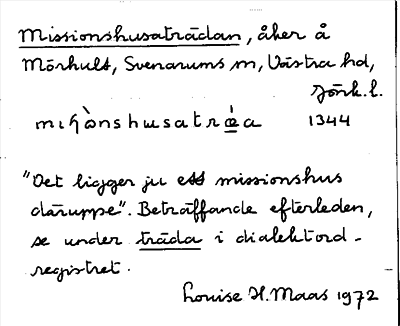 Missionshusaträdan, åker å
Mörhult, Svenarums sn, Västra hd,
Jönk. l.
mıɧὼnshusatræ̀a 1344
"Det ligger ju ett missionshus
däruppe". Beträffande efterleden,
se under träda i dialektord-
registret.
Louise H. Maas 1972